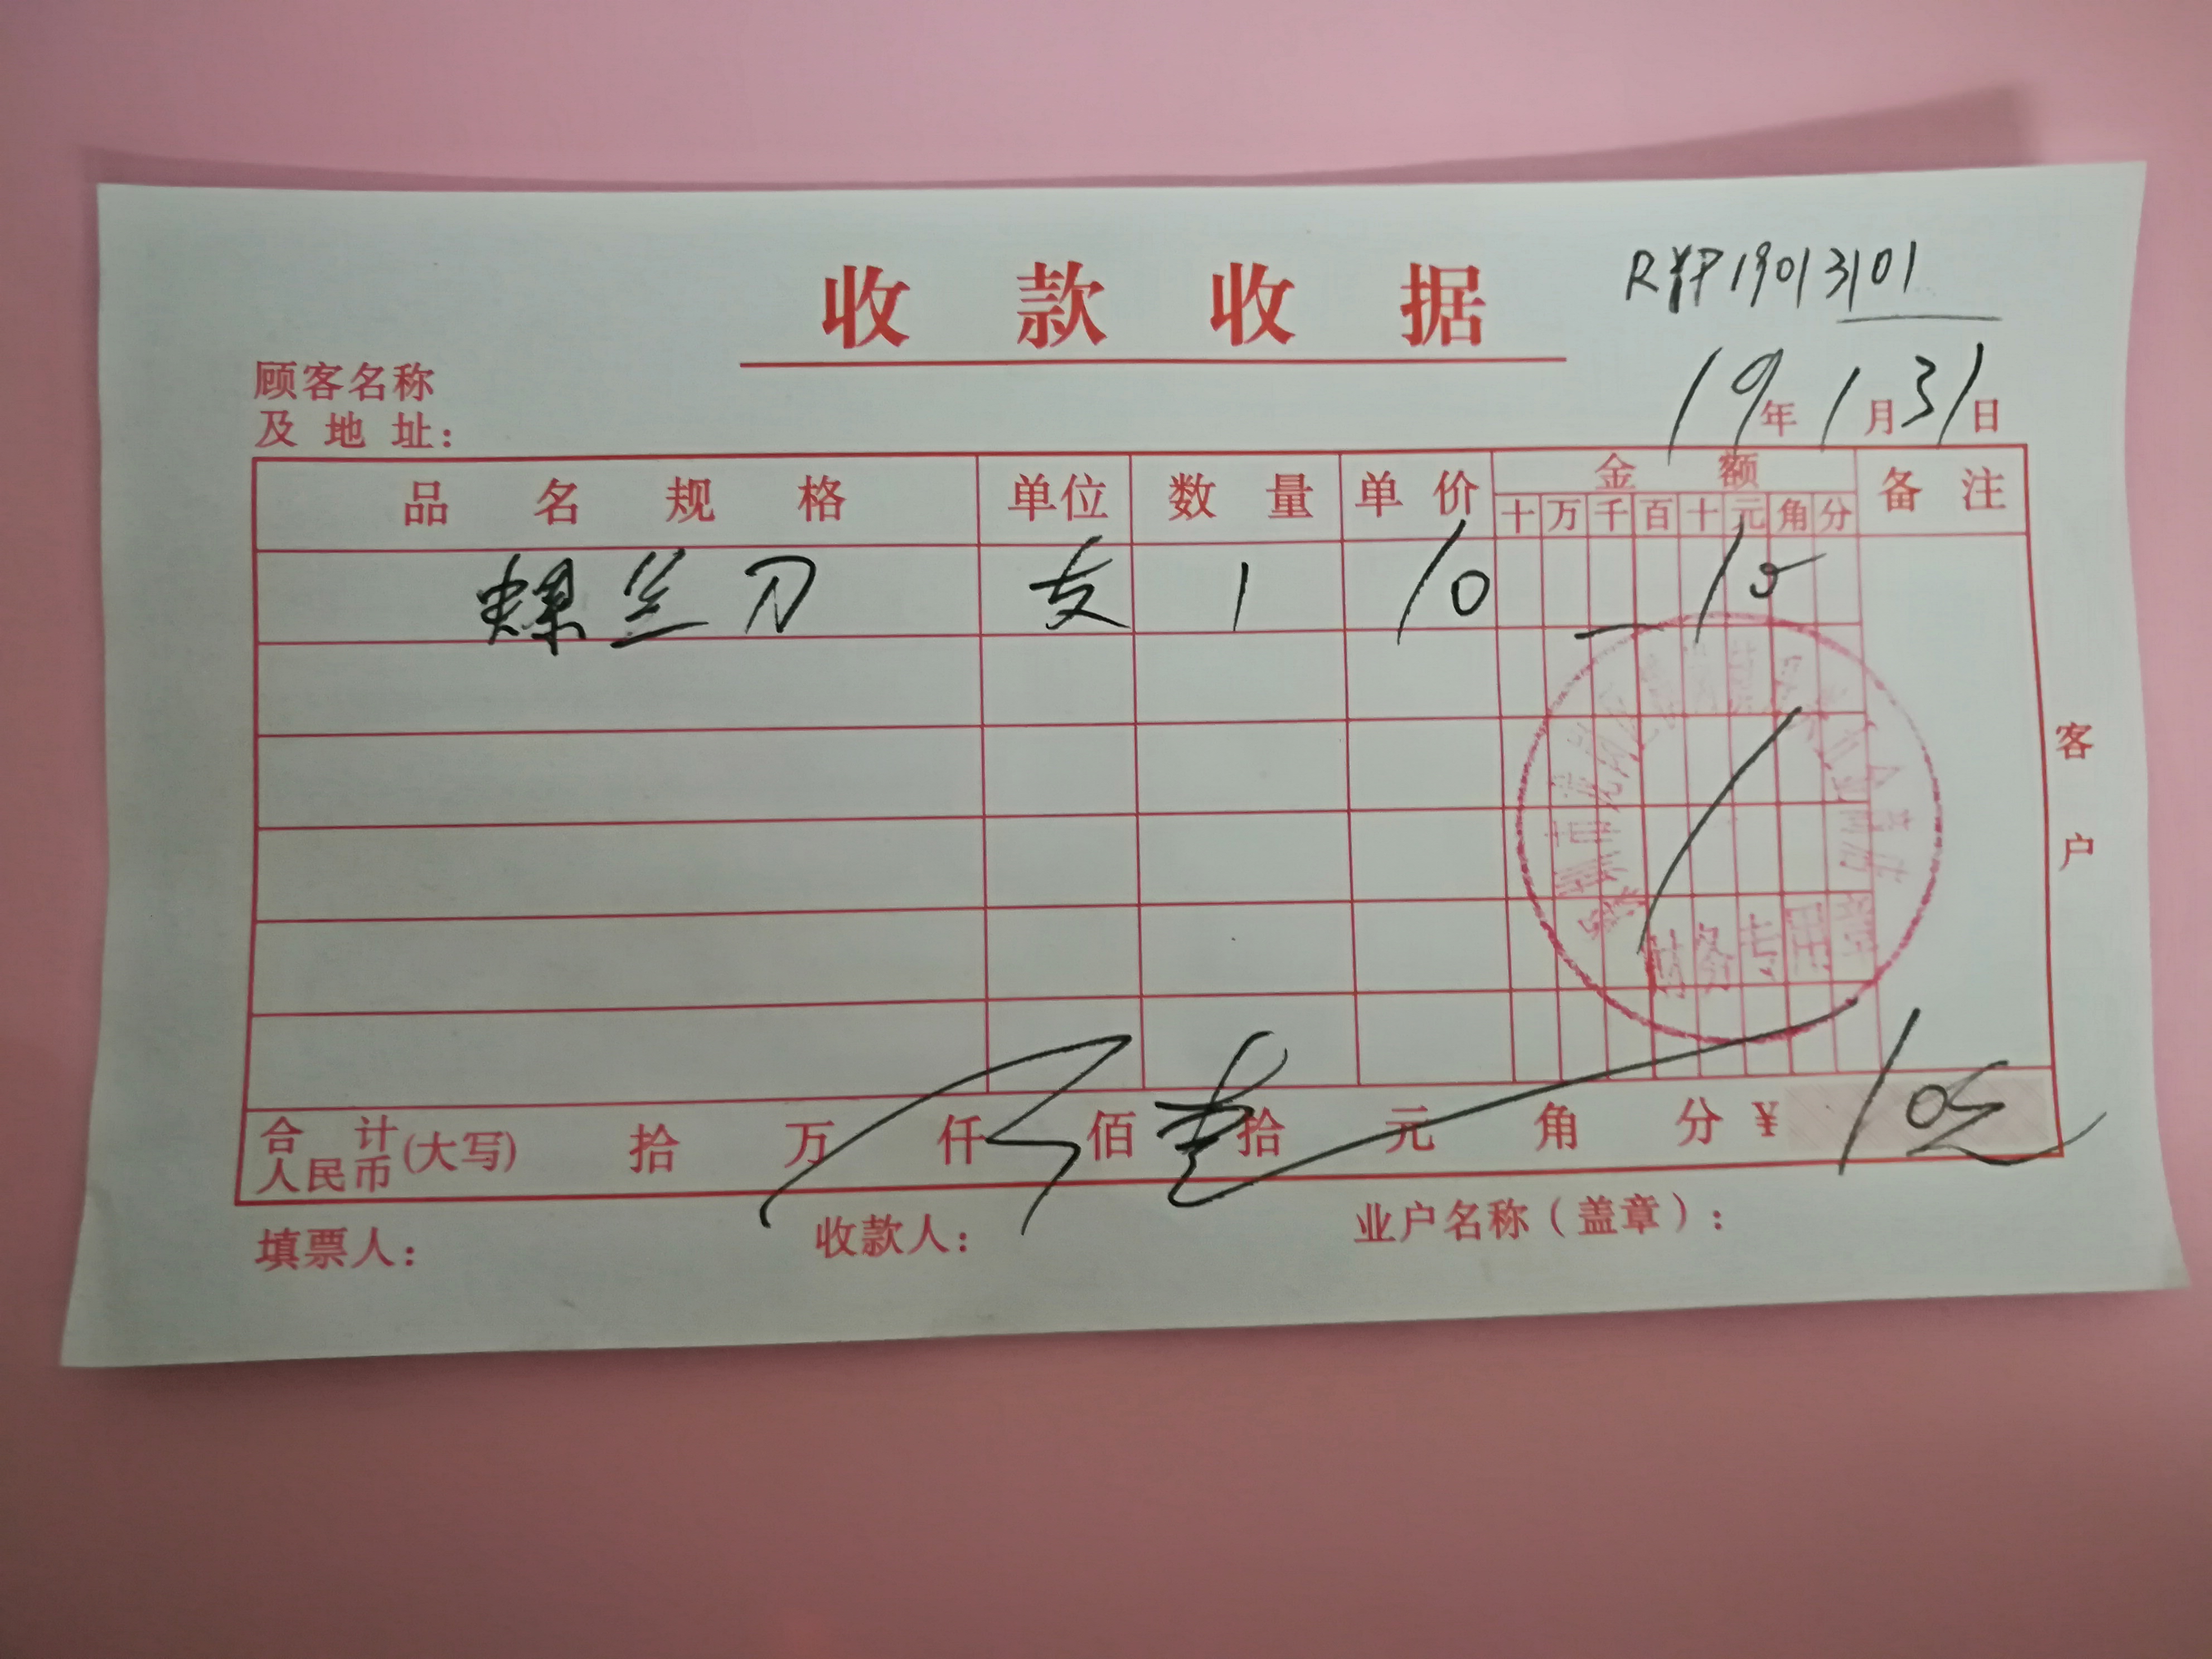 收款收据
RYP19013101
顾客名称
及地址:
19年1月31日
品名规格 单位 数量 单价 金额 备注
十 万 千 百 十 元 角 分
螺丝刀 支 1 10 10
客户
财务专用章
合计
人民币 (大写) 拾 万 仟 佰 壹拾 元 角 分 ¥ 10
填票人: 收款人: 业户名称(盖章):